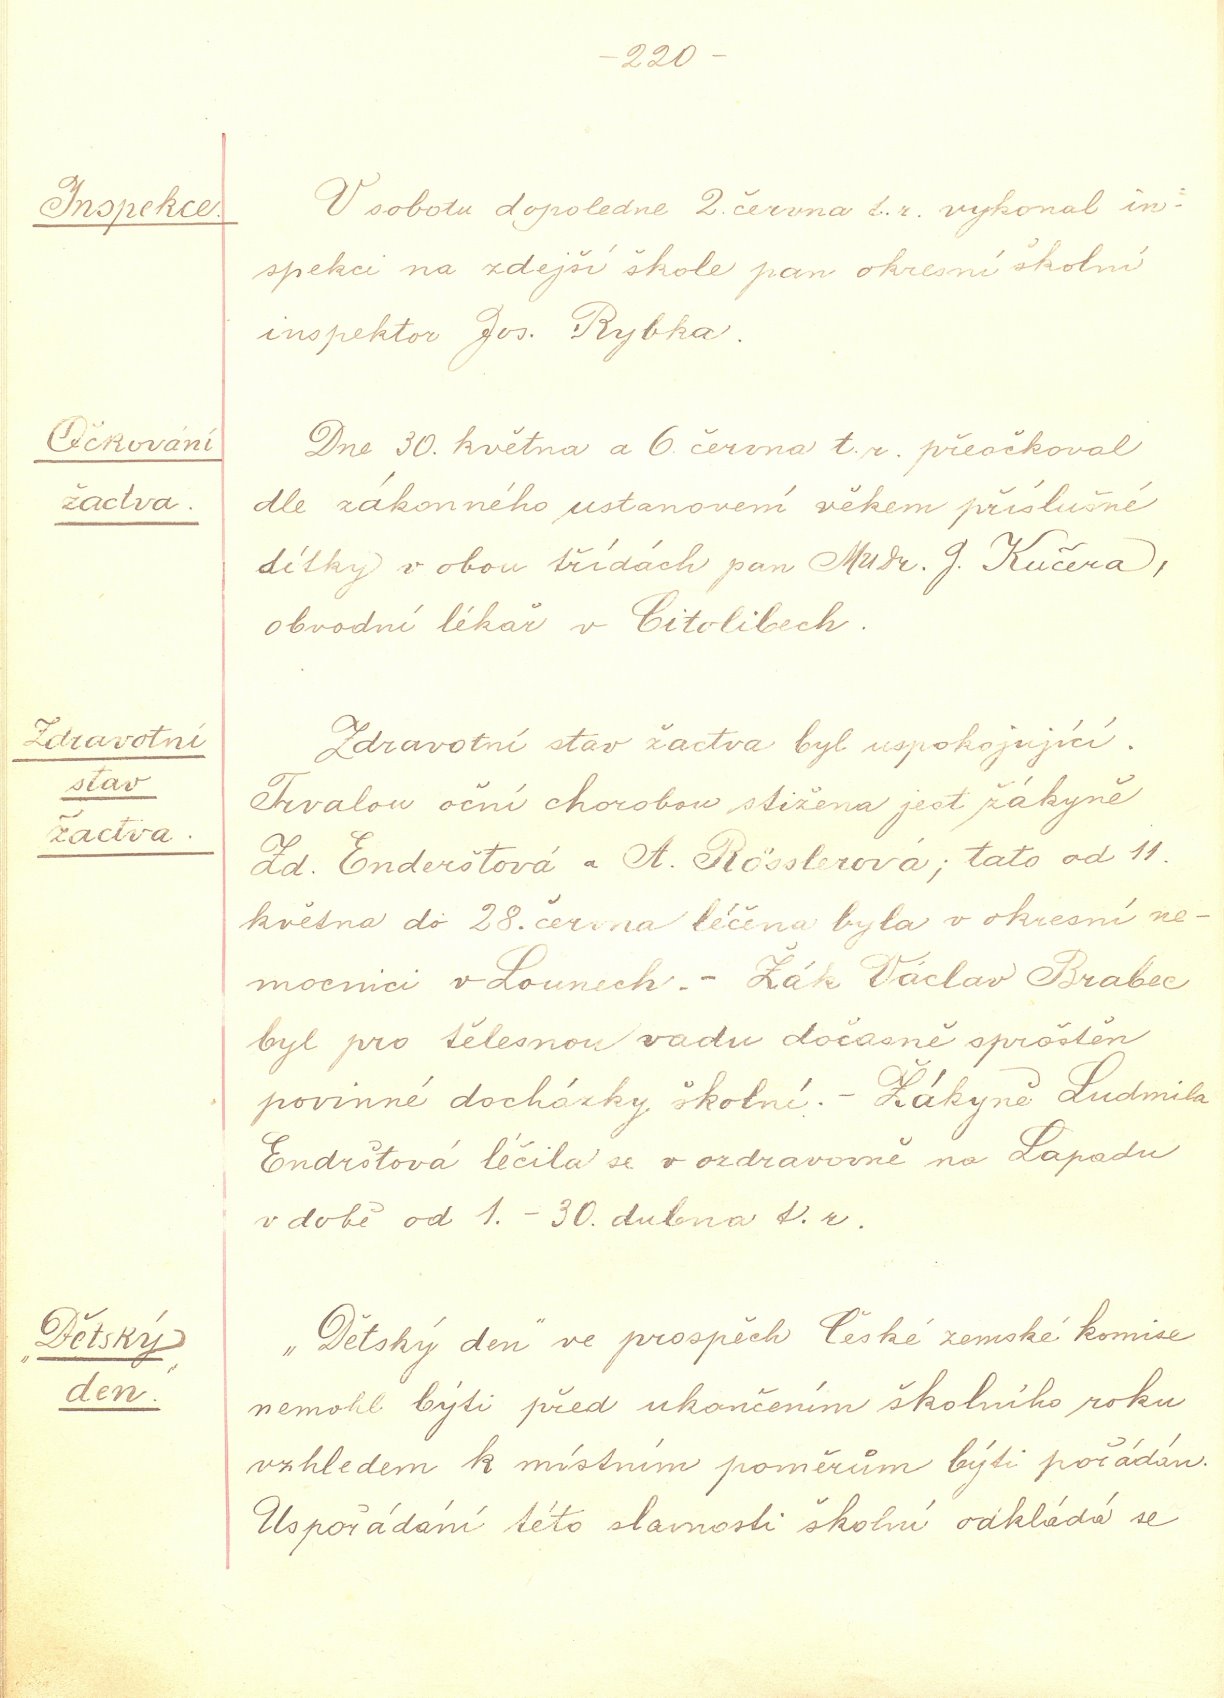 -220-
Inspekce.
V sobotu dopoledne 2. června t. r. vykonal in-
spekci na zdejší škole pan okresní školní
inspektor Jos. Rybka.
Očkování
žactva.
Dne 30. května a 6. června t. r. přeočkoval
dle zákonného ustanovení věkem příslušné
dítky v obou třídách pan MUDr. J. Kučera,
obvodní lékař v Citolibech.
Zdravotní
stav
žactva.
Zdravotní stav žactva byl uspokojující.
Trvalou oční chorobou stižena jest žákyně
Zd. Enderštová a A. Rösslerová; tato od 11.
května do 28. června léčena byla v okresní ne-
mocnici v Lounech. - Žák Václav Brabec
byl pro tělesnou vadu dočasně sproštěn
povinné docházky školní. - Žákyně Ludmila
Endrštová léčila se v ozdravovně na Lapadu
v době od 1. - 30. dubna t. r.
„Dětský
den."
„Dětský den" ve prospěch České zemské komise
nemohl býti před ukončením školního roku
vzhledem k místním poměrům býti pořádán.
Uspořádání této slavnosti školní odkládá se